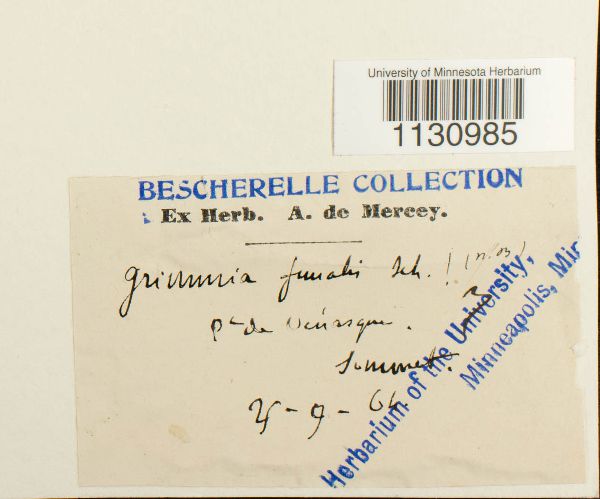 University of Minnesota Herbarium
1130985
BESCHERELLE COLLECTION
Ex Herb. A. de Mercey.
Grimmia funalis Sch. !
de
Sommet.
25 - 9 - 64
Herbarium of the University,
Minneapolis, Min